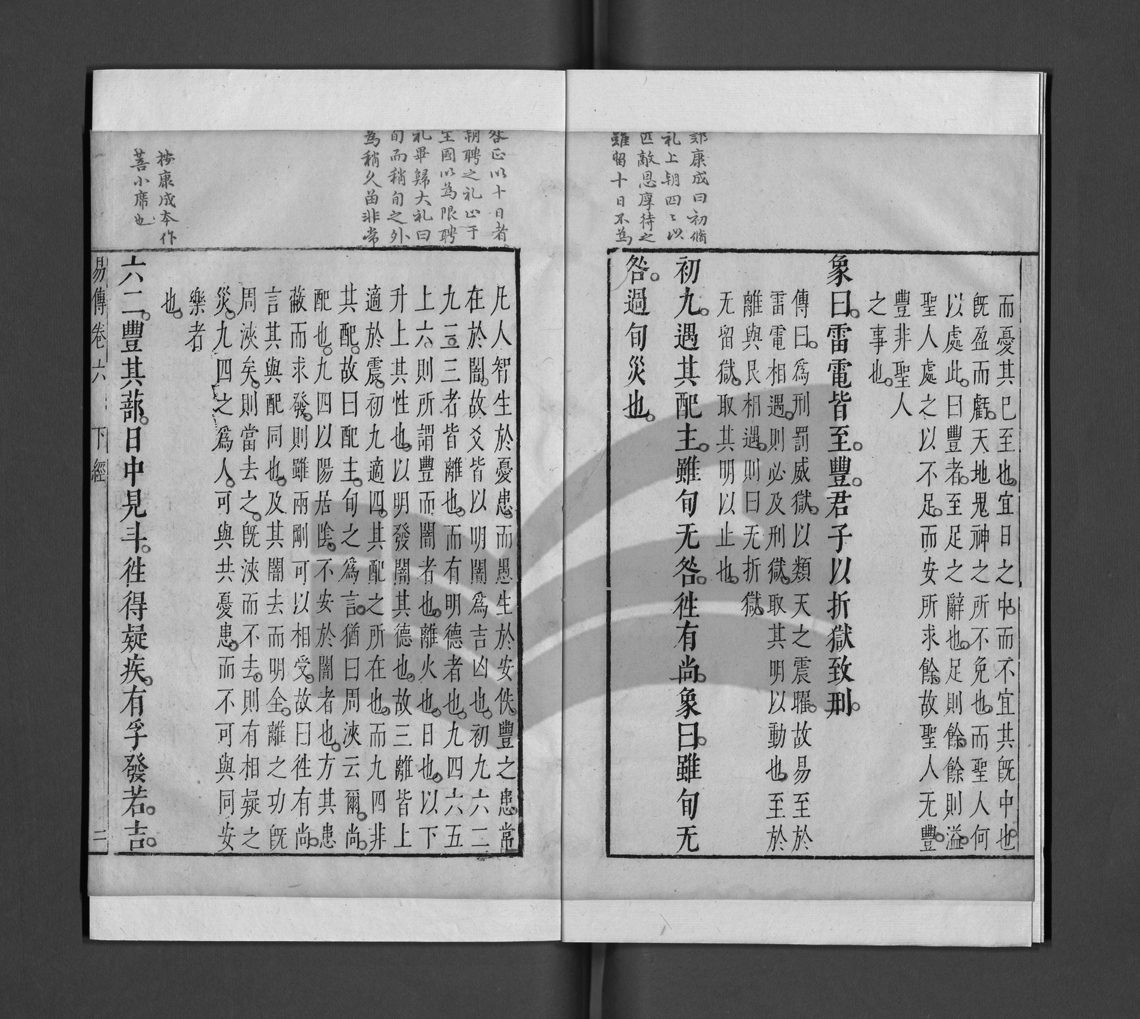 鄭康成曰初脩
礼上朝四〻以
匹敵恩厚待之
雖留十日不為
咎正以十日者
朝聘之礼止于
主國以為限聘
礼畢歸大礼曰
旬而稍旬之外
為稍久苗非常
按康成本作
菩小席也
而憂其已至也宜日之中而不宜其旣中也
旣盈而虧天地鬼神之所不免也而聖人何
以處此曰豐者至足之辭也足則餘餘則溢
聖人處之以不足而安所求餘故聖人无豐
豐非聖人
之事也
象曰雷電皆至豐君子以折獄致刑
傳曰爲刑罰威獄以類天之震曜故易至於
雷電相遇則必及刑獄取其明以動也至於
離與艮相遇則曰无折獄
无留獄取其明以止也
初九遇其配主雖旬无咎徃有尚象曰雖旬无
咎過旬災也
凡人智生於憂患而愚生於安佚豐之患常
在於闇故爻皆以明闇爲吉凶也初九六二
九三三者皆離也而有明德者也九四六五
上六則所謂豐而闇者也離火也日也以下
升上其性也以明發闇其德也故三離皆上
適於震初九適四其配之所在也而九四非
其配故曰配主旬之爲言猶曰周浹云爾尚
配也九四以陽居陰不安於闇者也方其患
蔽而求發則雖兩剛可以相受故曰徃有尚
言其與配同也及其闇去而明全離之功旣
周浹矣則當去之旣浹而不去則有相疑之
災九四之爲人可與共憂患而不可與同安
樂者
也
六二豐其蔀日中見斗徃得疑疾有孚發若吉
易傳卷六 下經 二